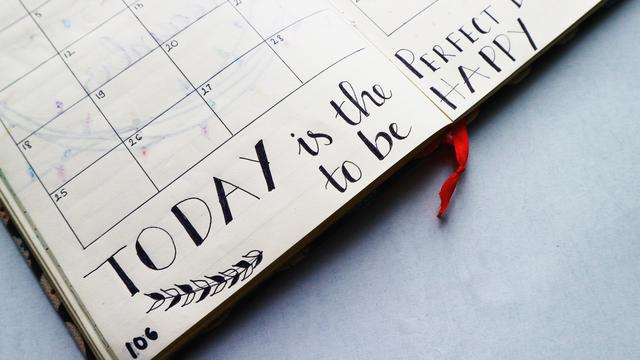 12
20
28
19
27
18
26
25
TODAY is the PERFECT
to be HAPPY
106